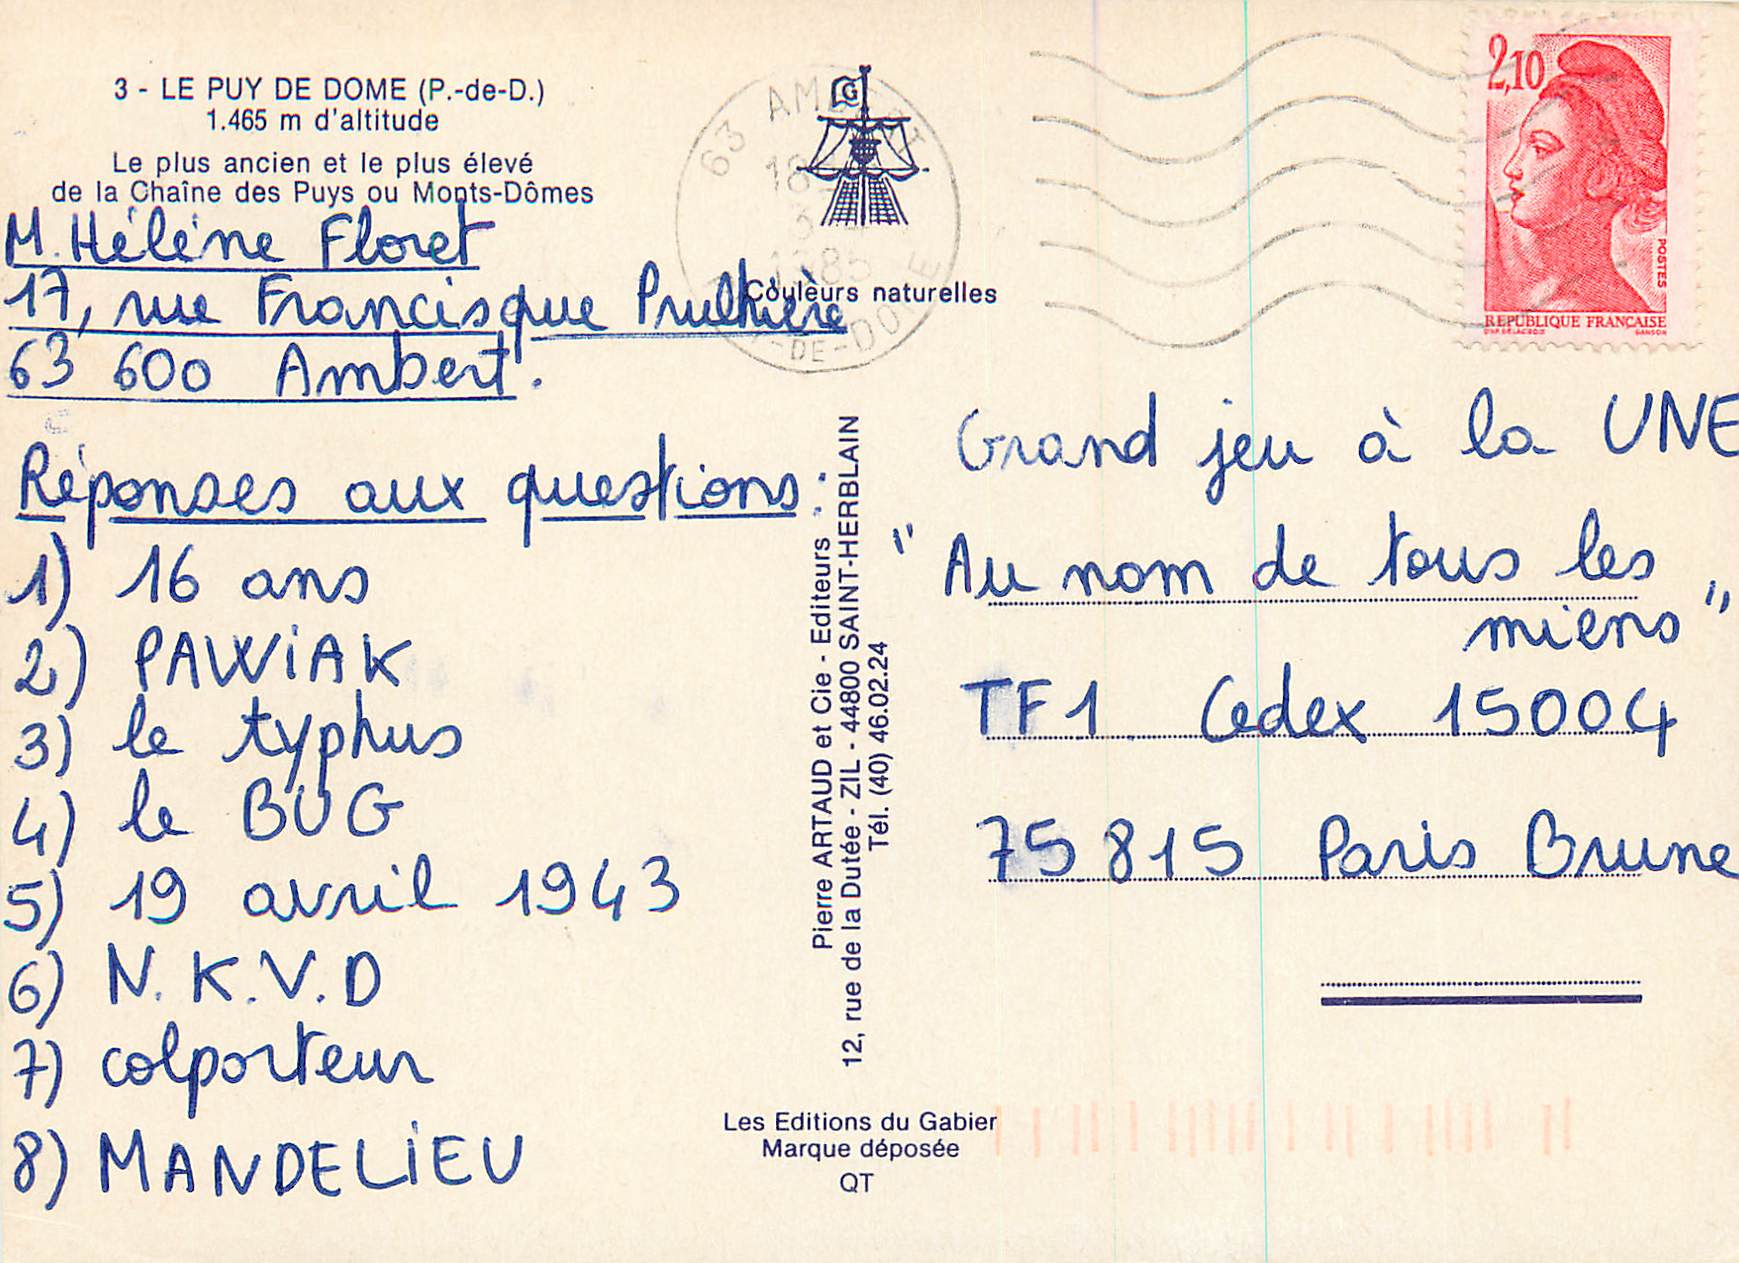 3 - LE PUY DE DOME (P.-de-D.)
1.465 m d'altitude
Le plus ancien et le plus élevé
de la Chaîne des Puys ou Monts-Dômes
M. Hélène Floret
17, rue Francisque Prulhière
63 600 Ambert.
Réponses aux questions :
1) 16 ans
2) PAWiAK
3) le typhus
4) le BUG
5) 19 avril 1943
6) N.K.V.D
7) colporteur
8) MANDELiEU
63 AMBERT
18
3
1985
-DE-DOME
G
Couleurs naturelles
Pierre ARTAUD et Cie - Editeurs
12, rue de la Dutée - ZIL - 44800 SAINT-HERBLAIN
Tél. (40) 46.02.24
Les Editions du Gabier
Marque déposée
QT
2,10
POSTES
REPUBLIQUE FRANÇAISE
D'AP. DELACROIX GANDON
Grand jeu à la UNE
" Au nom de tous les
miens "
TF1 Cedex 15004
75 815 Paris Brune